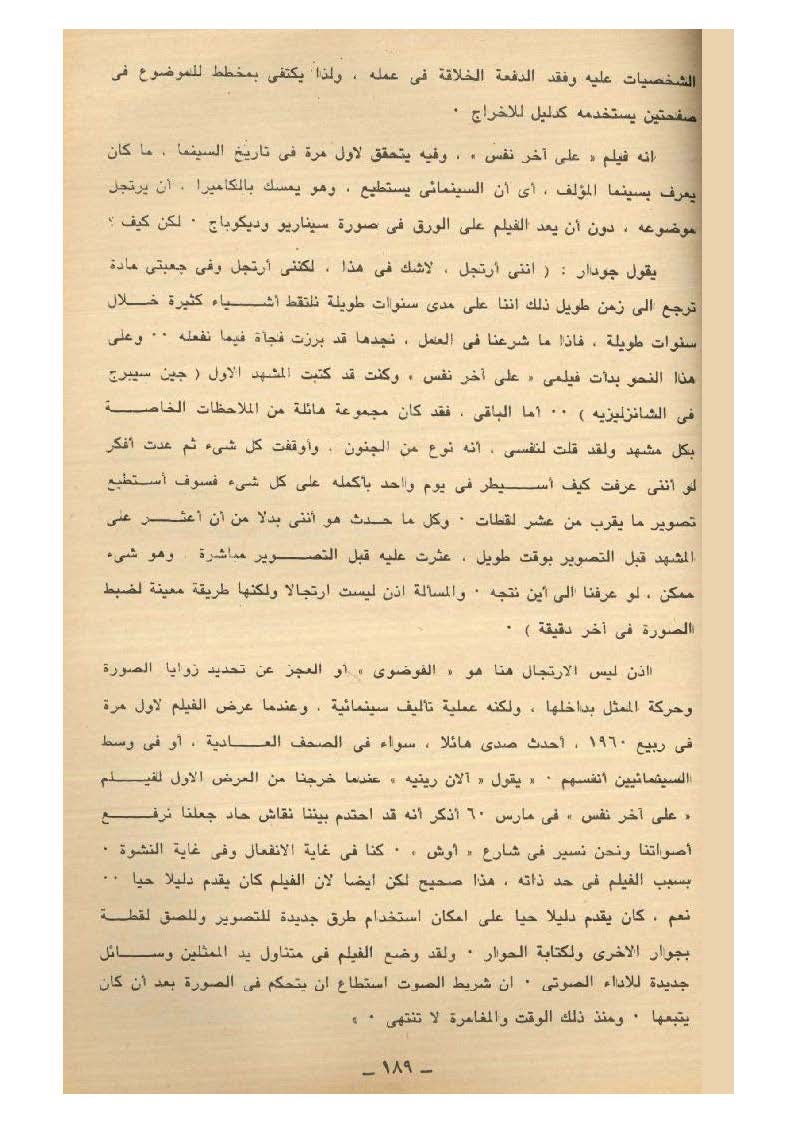 الشخصيات عليه وفقد الدفعة الخلاقة فى عمله ، ولذا يكتفى بمخطط للموضوع فى
صفحتين يستخدمه كدليل للاخراج ٠
انه فيلم « على آخر نفس » ، وفيه يتحقق لاول مرة فى تاريخ السينما ، ما كان
يعرف بسينما المؤلف ، أى أن السينمائى يستطيع ، وهو يمسك بالكاميرا ، أن يرتجل
موضوعه ، دون أن يعد الفيلم على الورق فى صورة سيناريو وديكوباج ٠ لكن كيف ؟
يقول جودار : ( اننى أرتجل ، لاشك فى هذا ، لكننى أرتجل وفى جعبتى مادة
ترجع الى زمن طويل ذلك اننا على مدى سنوات طويلة نلتقط أشـــياء كثيرة خـــلال
سنوات طويلة ، فاذا ما شرعنا فى العمل ، نجدها قد برزت فجأة فيما نفعله ٠٠ وعلى
هذا النحو بدأت فيلمى « على آخر نفس » وكنت قد كتبت المشهد الاول ( جين سيبرج
فى الشانزليزيه ) ٠٠ أما الباقى ، فقد كان مجموعة هائلة من الملاحظات الخاصـــة
بكل مشهد ولقد قلت لنفسى ، أنه نوع من الجنون ، وأوقفت كل شىء ثم عدت أفكر
لو أننى عرفت كيف أســـيطر فى يوم واحد بأكمله على كل شىء فسوف أســتطيع
تصوير ما يقرب من عشر لقطات ٠ وكل ما حـدث هو أننى بدلا من أن أعثـــر على
المشهد قبل التصوير بوقت طويل ، عثرت عليه قبل التصـــوير مباشرة ، وهو شىء
ممكن ، لو عرفنا الى أين نتجه ٠ والمسألة اذن ليست ارتجالا ولكنها طريقة معينة لضبط
الصورة فى آخر دقيقة ) ٠
اذن ليس الارتجال هنا هو « الفوضوى » أو العجز عن تحديد زوايا الصورة
وحركة الممثل بداخلها ، ولكنه عملية تأليف سينمائية ، وعندما عرض الفيلم لاول مرة
فى ربيع ١٩٦٠ ، أحدث صدى هائلا ، سواء فى الصحف العـــادية ، أو فى وسط
السينمائيين أنفسهم ٠ « يقول « آلان رينيه » عندما خرجنا من العرض الاول لفيـــلم
« على آخر نفس » فى مارس ٦٠ أذكر أنه قد احتدم بيننا نقاش حاد جعلنا نرفـــع
أصواتنا ونحن نسير فى شارع « أوش » ٠ كنا فى غاية الانفعال وفى غاية النشوة ٠
بسبب الفيلم فى حد ذاته ، هذا صحيح لكن ايضا لان الفيلم كان يقدم دليلا حيا ٠٠
نعم ، كان يقدم دليلا حيا على امكان استخدام طرق جديدة للتصوير وللصق لقطـــة
بجوار الاخرى ولكتابة الحوار ٠ ولقد وضع الفيلم فى متناول يد الممثلين وســـائل
جديدة للاداء الصوتى ٠ ان شريط الصوت استطاع ان يتحكم فى الصورة بعد أن كان
يتبعها ٠ ومنذ ذلك الوقت والمغامرة لا تنتهى ٠ »
ـ ١٨٩ ـ